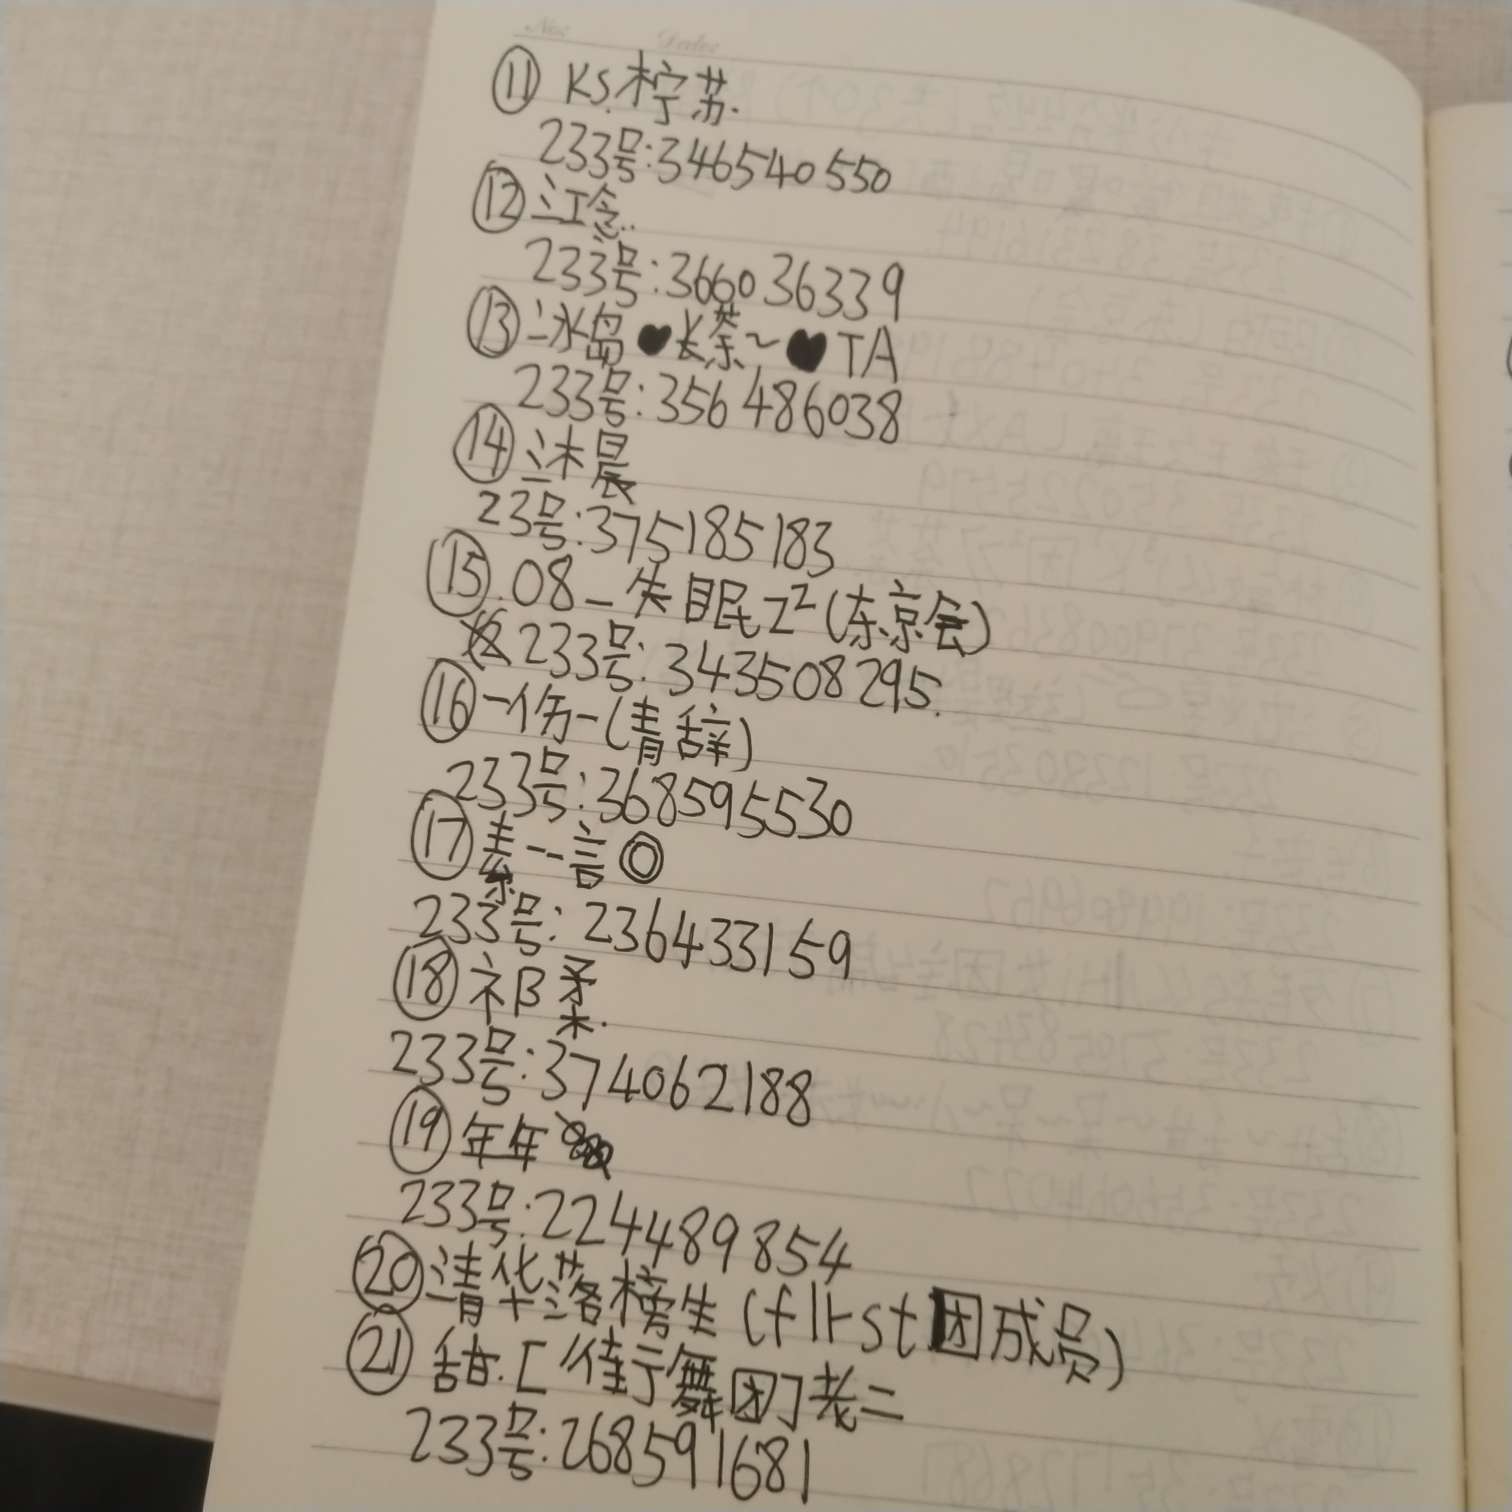 No:
Date
⑪ KS.柠苏.
233号:346540550
⑫ 江念..
233号:366036339
⑬ 冰岛♥长荼~♥TA
233号:356486038
⑭ 沐晨
23号:375185183
⑮.08_失眠Z²(东京会)
233号:343508295.
⑯ 一伤一(青辞)
233号:368595530
⑰ 素--言◎
233号:236433159
⑱ 祁柔.
233号:374062188
⑲ 年年
233号:224489854
⑳ 清华落榜生(first团成员)
㉑ 甜.[ 舞团]老二
233号:268591681